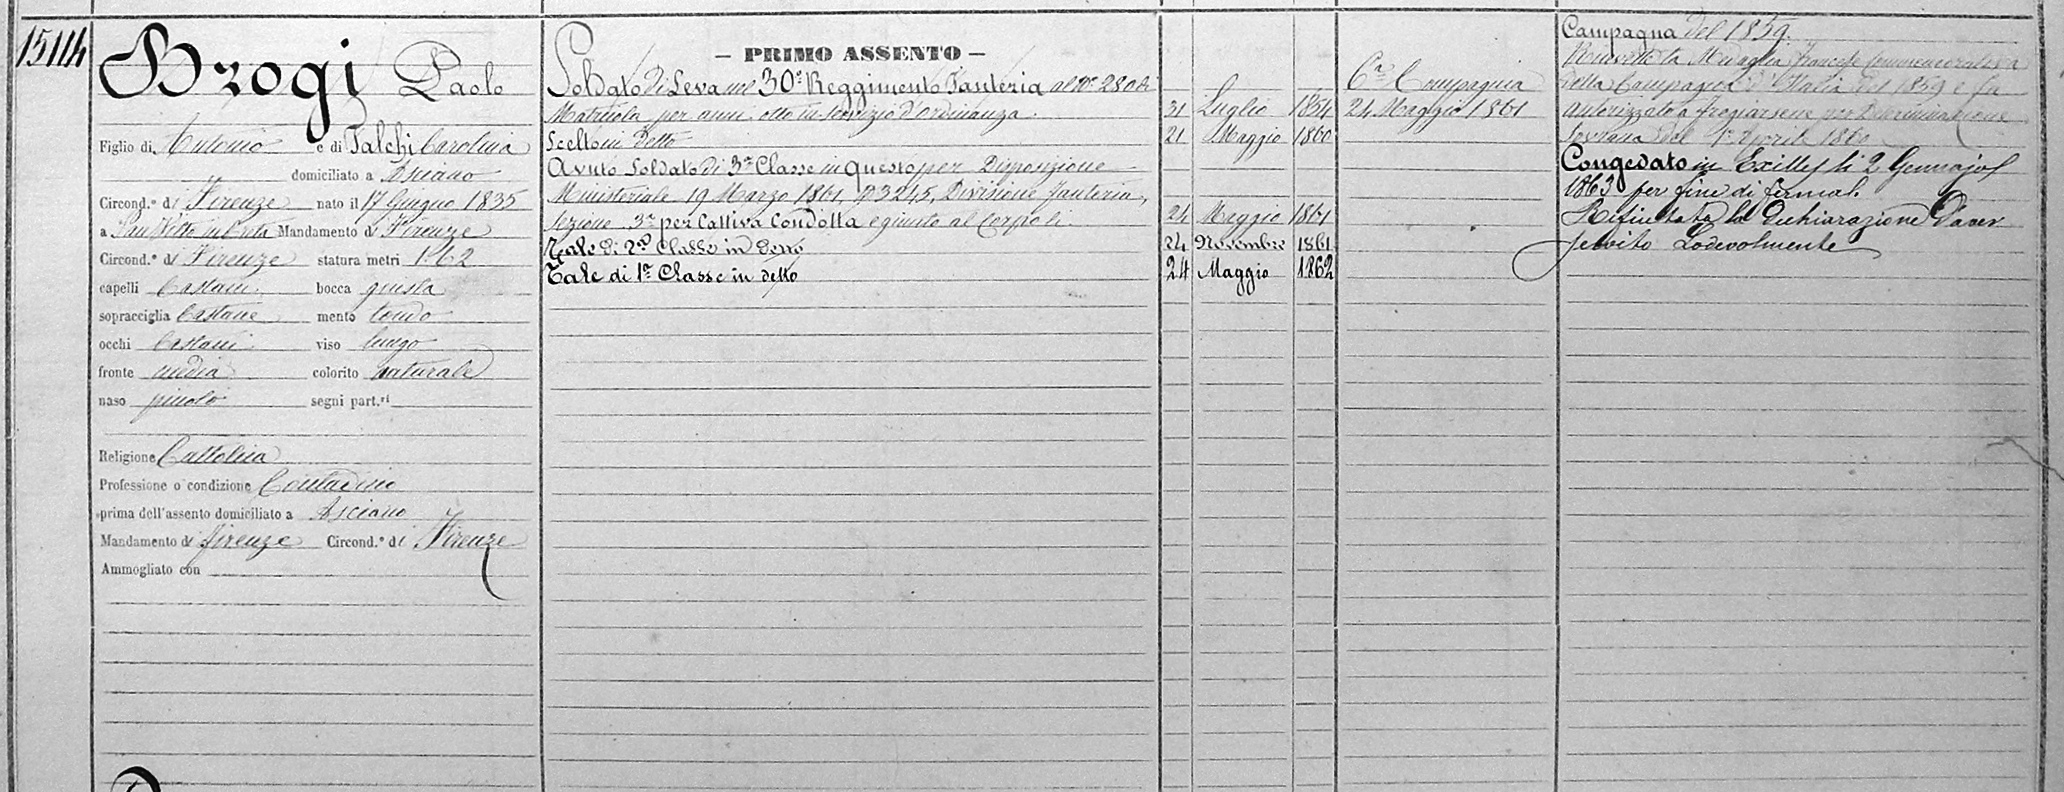 15114
Brogi Paolo
Figlio di Antonio e di Falchi Carolina
domiciliato a Asciano
Circond.º di Firenze nato il 17 Giugno 1835
a San Vitto Mandamento di Firenze
Circond.º di Firenze statura metri 1.62
capelli Castani bocca giusta
sopracciglia Castane mento tondo
occhi Castani viso lungo
fronte media colorito naturale
naso piccolo segni part.ri
Religione Cattolica
Professione o condizione Contadino
prima dell'assento domiciliato a Asciano
Mandamento di Firenze Circond.º di Firenze
Ammogliato con
— PRIMO ASSENTO —
Soldato di Leva nel 30º Reggimento Fanteria al Nº 280 di
Matricola per anni otto in servizio d'ordinanza. 31 Luglio 1854
Scelto in detto 21 Maggio 1860
Avuto Soldato di 3ª Classe in Questo per Disposizione
Ministeriale 19 Marzo 1861, Nº 3245, Divisione Fanteria,
Sezione 3ª per Cattiva Condotta e giunto al Corpo li 24 Maggio 1861
Tale di 2ª Classe in detto 24 Novembre 1861
Tale di 1ª Classe in detto 24 Maggio 1862
6ª Compagnia
24 Maggio 1861
Campagna del 1859.
Ricevette la Medaglia Francese Commemorativa
della Campagna d'Italia del 1859 e fu
autorizzato a fregiarsene per Determinazione
Sovrana del 1º Aprile 1860
Congedato in Exilles li 2 Gennajo
1863 per fine di ferma.
Rifiutata la Dichiarazione d'aver
servito Lodevolmente